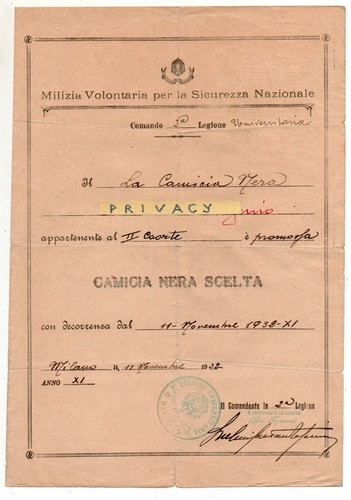 Milizia Volontaria per la Sicurezza Nazionale
Comando 2a Legione Universitaria
Il La Camicia Nera
PRIVACY
appartenente al II Coorte è promossa
CAMICIA NERA SCELTA
con decorrenza dal 11 - Novembre 1932 - XI
Milano li, 11 Novembre 1932
ANNO XI
Il Comandante la 2a Legione